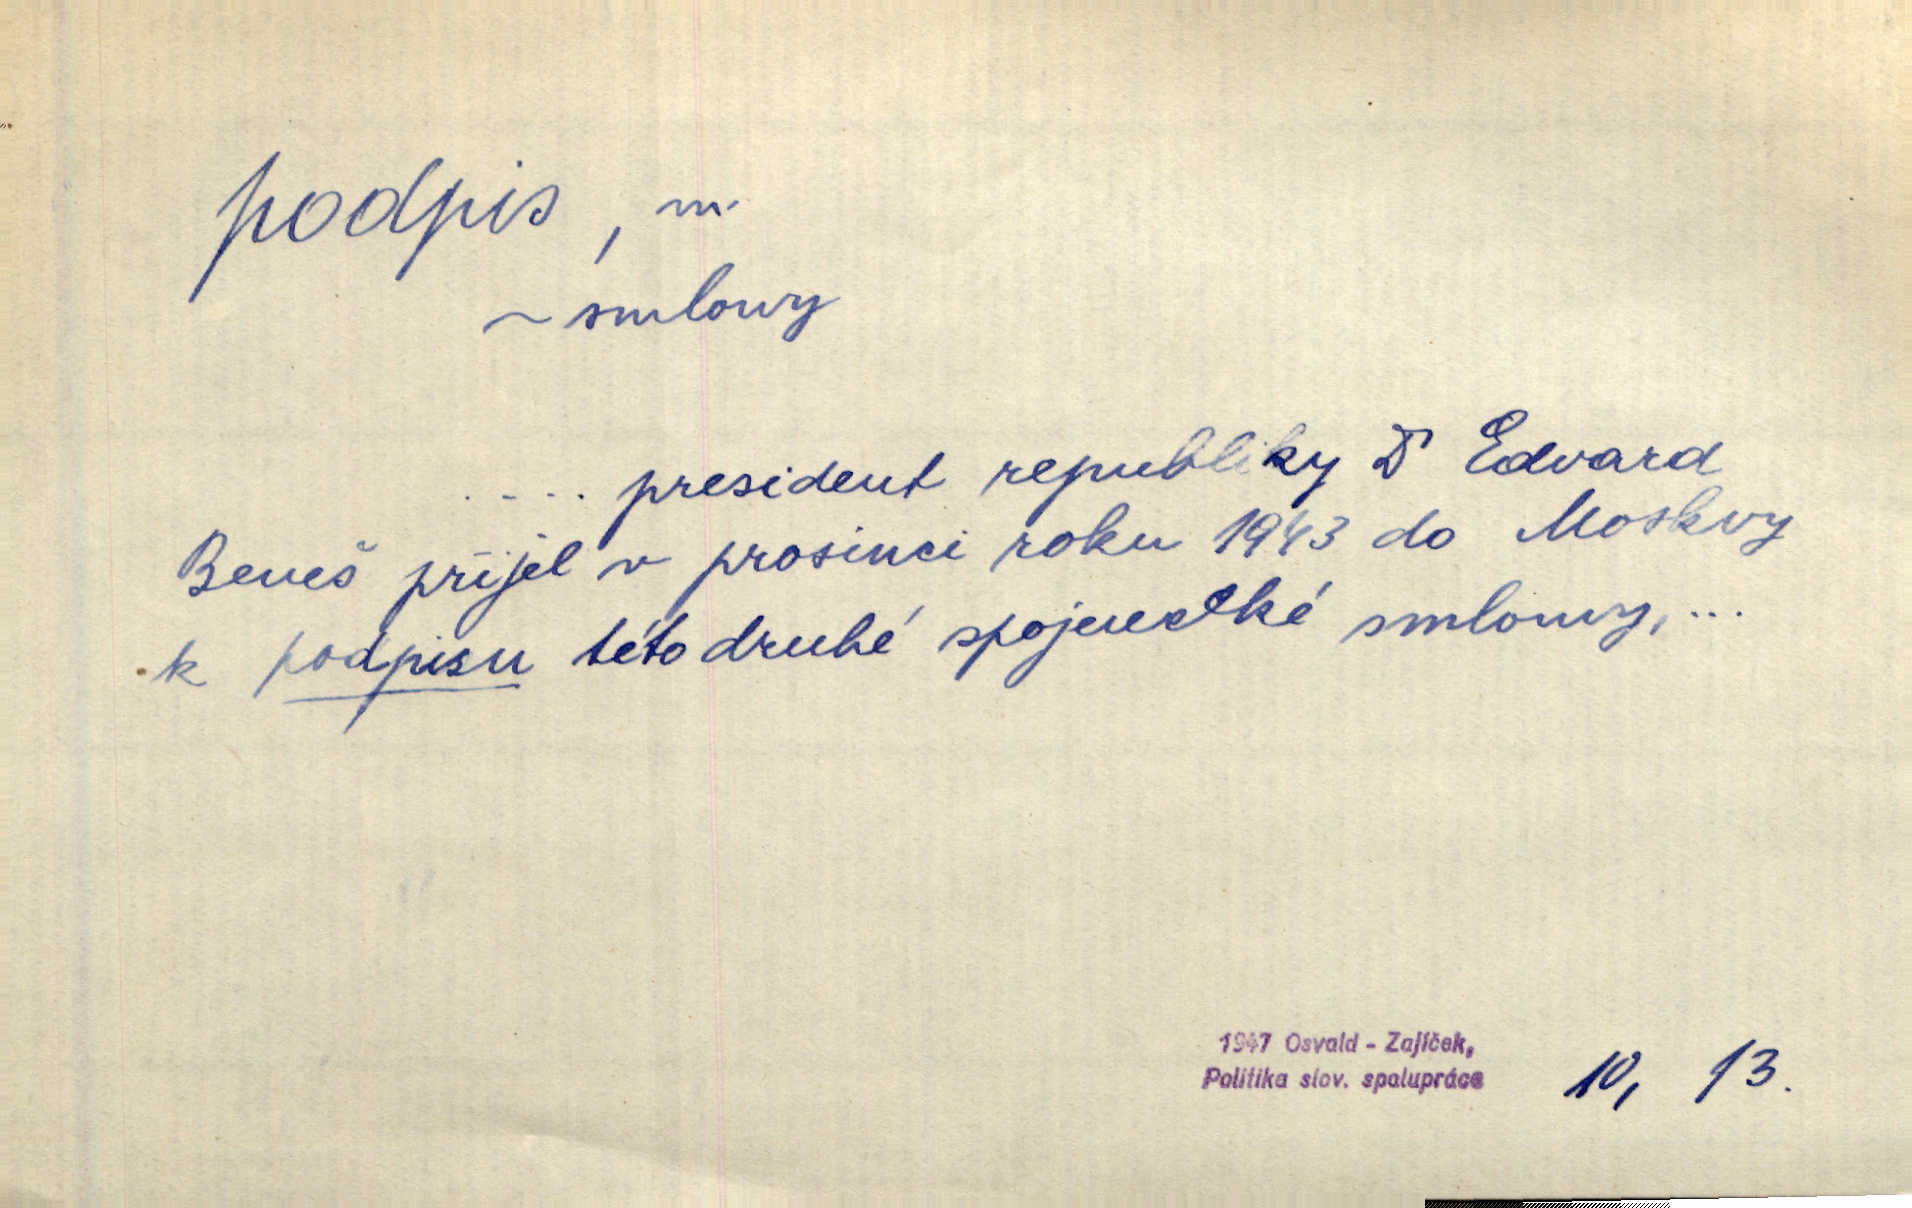 podpis, m.
~ smlouvy
..... president republiky Dr Edvard
Beneš přijel v prosinci roku 1943 do Moskvy
k podpisu této druhé spojenecké smlouvy, ...
1947 Osvald - Zajíček,
Politika slov. spolupráce
10, 13.